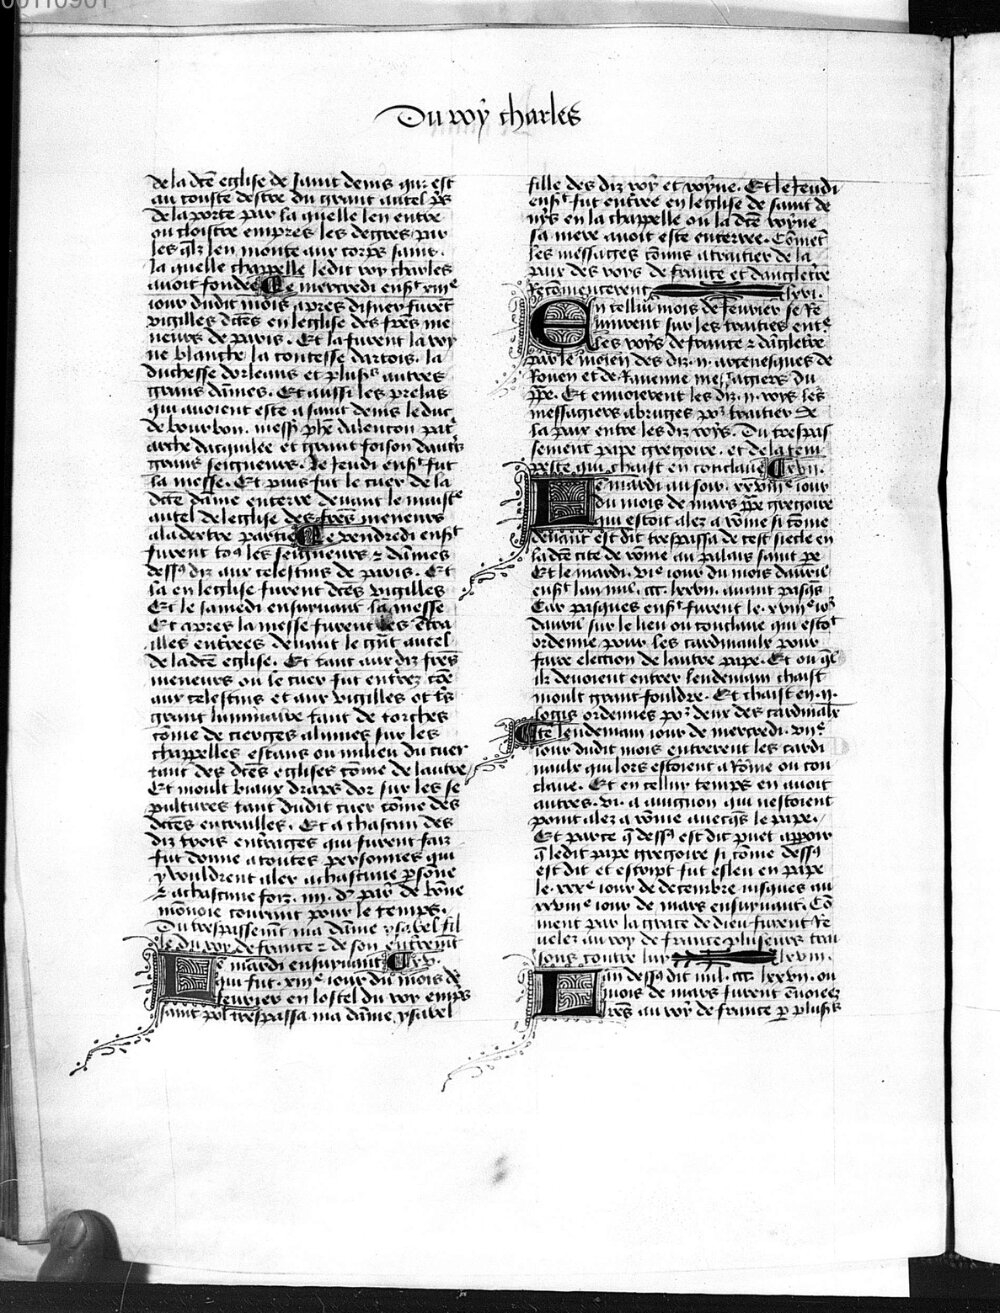 00110901
Du roy charles
de la dcē eglise de saint denis qui est
au couste destre du grant autel p̄s
de la porte par la quelle len entre
ou cloistre empres les degres par
les q̄lz len monte aux corps sains.
la quelle chappelle ledit roy charles
auoit fondee Le mercredi ensᵗ xiiiᵉ
iour dudit mois apres disner furēt
vigilles dcēs en leglise des frēs me
neurs de paris. Et la furent la roy
ne blanche la contesse dartois. la
duchesse dorleans et plusˢ autres
grans dāmes. Et aussi les prelas
qui auoient este a saint denis le duc
de bourbon. messʳ phē dalencon pat
arche dacquilee et grant foison dautʳs
grans seigneurs. Le Jeudi ensᵗ fut
la messe. Et puis fut le cuer de la
dcē dāme enterre deuant le maistᵉ
autel de leglise des frēs meneurs
a la dextre partie Le vendredi ensᵗ
furent toˢ les seigneurs ⁊ dāmes
dessˢ diz aux celestins de paris. Et
la en leglise furent dcēs vigilles
Et le samedi ensuiuant la messe
Et apres la messe furent les entra
illes entrēes deuant le gn̄t autel
de la dcē eglise. Et tant aux diz frēs
meneurs ou le cuer fut entrez cōe
aux celestins et aux vigilles ot t̄s
grant luminaire tant de torches
cōme de cierges alumes sur les
chappelles estans ou milieu du cuer
tant des dcēs eglises cōme de lautre
Et moult biaux draps dor sur les se
pultures tant dudit cuer cōme des
dcēs entrailles. Et a chascun des
diz trois entʳrages qui furent faiz
fut donne a toutes personnes qui
y vouldrent aler a chascune p̄sone
⁊ a chascune foiz .iiii. dʳ par̄ de bōne
mōnoie courant pour le temps.
Du trespassemt̄ ma dāme ysabel fil
le du roy de france ⁊ de son entʳemt̄
Le mardi ensuiuant Cxv.
qui fut .xiiiᵉ iour du mois de
feurier en lostel du roy emp̄s
saint pol trespassa ma dāme ysabel
fille des diz roy et royne. Et le Jeudi
ensᵗ fut entʳee en leglise de saint de
nys en la chappelle ou la dcē royne
sa mere auoit este enterree. Cōment
les messages cōmis a traitier de la
paix des roys de france et dangletʳre
Recōmencerent lxvi.
En cellui mois de feurier se Re
uindrent sur les traities entʳe
les roys de france ⁊ dangletʳre
par le moien des diz .ii. arceuesques de
Rouen et de Rauenne messagiers du
pp̄e. Et enuoierent les diz .ii. roys les
messagiers a bruges poʳ traitier de
la paix entre les diz roys. Du trespas
sement pape gregoire. et de la tem
peste qui chaist en conclaue Cxvii.
Le mardi au soir. xxviiiᵉ iour
du mois de mars pp̄e gregoire
qui estoit alez a rōme si cōme
deuant est dit trespassa de cest siecle en
la dcē cite de rōme au palais saint pe
Et le mardi .viᵉ iour du mois dauril
ensᵗ lan mil .ccc. lxxvii. auant pasq̄s
Car pasques ensᵗ furent le .xviiiᵉ ioʳ
dauril sur le lieu ou conclaue qui estoᵗ
ordenne pour les cardinaulx pour
faire election de lautre pape. Et ou q̄l
ilz deuoient entrer lendemain chaist
moult grant fouldre. Et chaist en .ii.
logis ordennes poʳ deux des cardinalx
Et le lendemain iour de mercredi .viiᵉ
iour dudit mois entrerent les cardi
naulx qui lors estoient a Rōme ou con
claue. Et en cellui temps en auoit
autres .vi. a auignon qui nestoient
point alez a rōme auecq̄s le pape.
Et parce q̄ dessˢ est dit puet apparoir
q̄ ledit pape gregoire si cōme dessˢ
est dit et escript fut esleu en pape
le .xxxᵉ iour de decembre iusques au
xxviiiᵉ iour de mars ensuiuant. Cō
ment par la grace de dieu furent Re
uelez au roy de france plusieurs trai
sons contre luy lxviii.
Lan dessˢ dit mil .ccc. lxxvii. ou
mois de mars furent enuoiees
lrēs au roy de france p̄ plusˢ